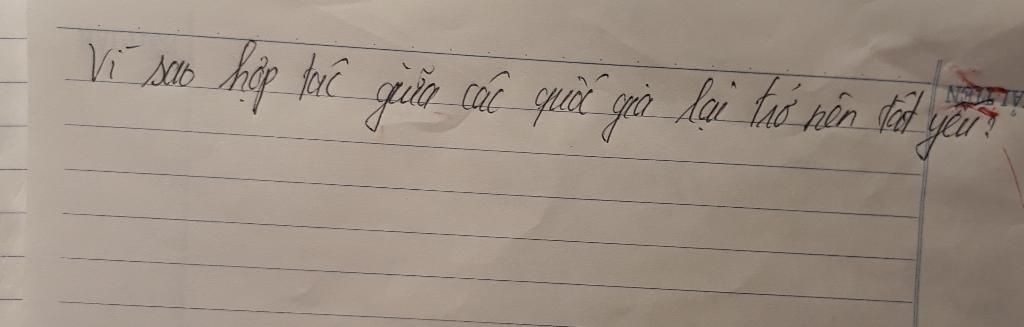 Vì sao hợp tác giữa các quốc gia lại trở nên tất yếu?